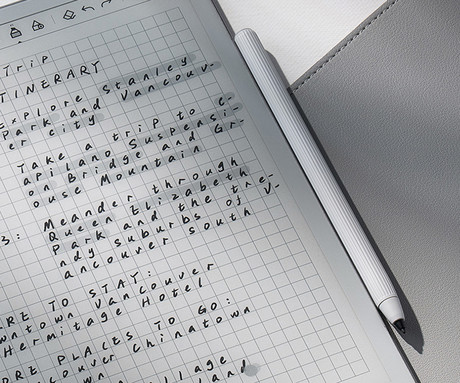 Trip
TINERARY
xplore Stanley
Park and Vancouv-
er city
Take a trip to C-
apilano Suspensi-
on Bridge and Gr-
ouse Mountain
3: Meander through
Queen Elizabeth
Park and the tre-
ndy suburbs of V-
ancouver south
ERE TO STAY:
wntown Vancouver
Hermitage Hotel
ORE PLACES TO GO:
couver Chinatown
wn
llage
land